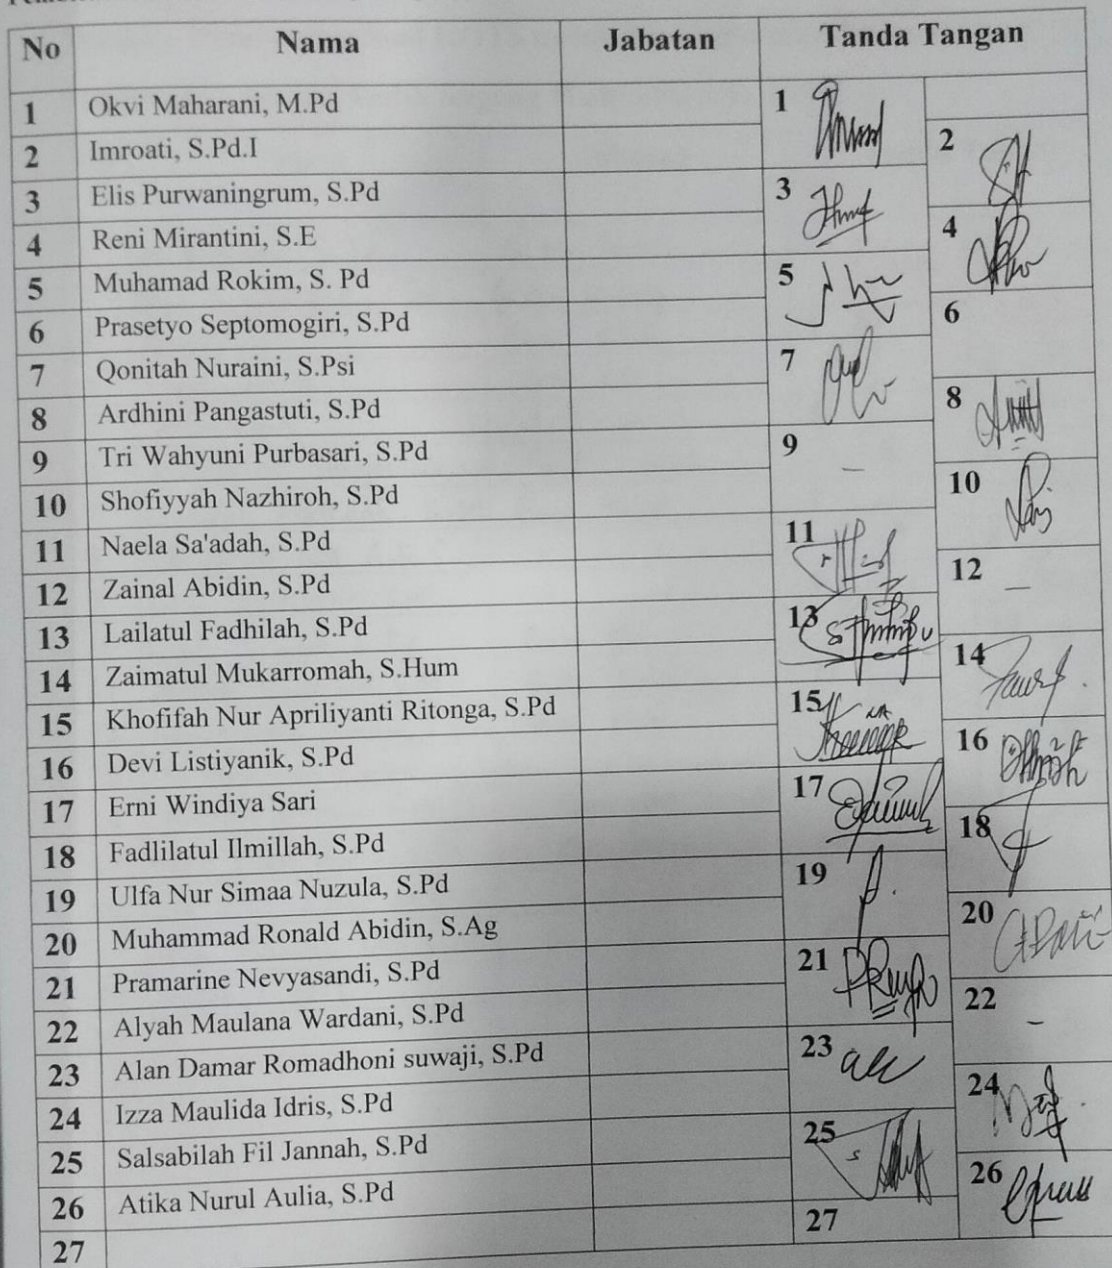 No Nama Jabatan Tanda Tangan
1 Okvi Maharani, M.Pd 1
2 Imroati, S.Pd.I 2
3 Elis Purwaningrum, S.Pd 3
4 Reni Mirantini, S.E 4
5 Muhamad Rokim, S. Pd 5
6 Prasetyo Septomogiri, S.Pd 6
7 Qonitah Nuraini, S.Psi 7
8 Ardhini Pangastuti, S.Pd 8
9 Tri Wahyuni Purbasari, S.Pd 9 –
10 Shofiyyah Nazhiroh, S.Pd 10
11 Naela Sa'adah, S.Pd 11
12 Zainal Abidin, S.Pd 12 –
13 Lailatul Fadhilah, S.Pd 13
14 Zaimatul Mukarromah, S.Hum 14
15 Khofifah Nur Apriliyanti Ritonga, S.Pd 15
16 Devi Listiyanik, S.Pd 16
17 Erni Windiya Sari 17
18 Fadlilatul Ilmillah, S.Pd 18
19 Ulfa Nur Simaa Nuzula, S.Pd 19
20 Muhammad Ronald Abidin, S.Ag 20
21 Pramarine Nevyasandi, S.Pd 21
22 Alyah Maulana Wardani, S.Pd 22 –
23 Alan Damar Romadhoni suwaji, S.Pd 23
24 Izza Maulida Idris, S.Pd 24
25 Salsabilah Fil Jannah, S.Pd 25
26 Atika Nurul Aulia, S.Pd 26
27 27